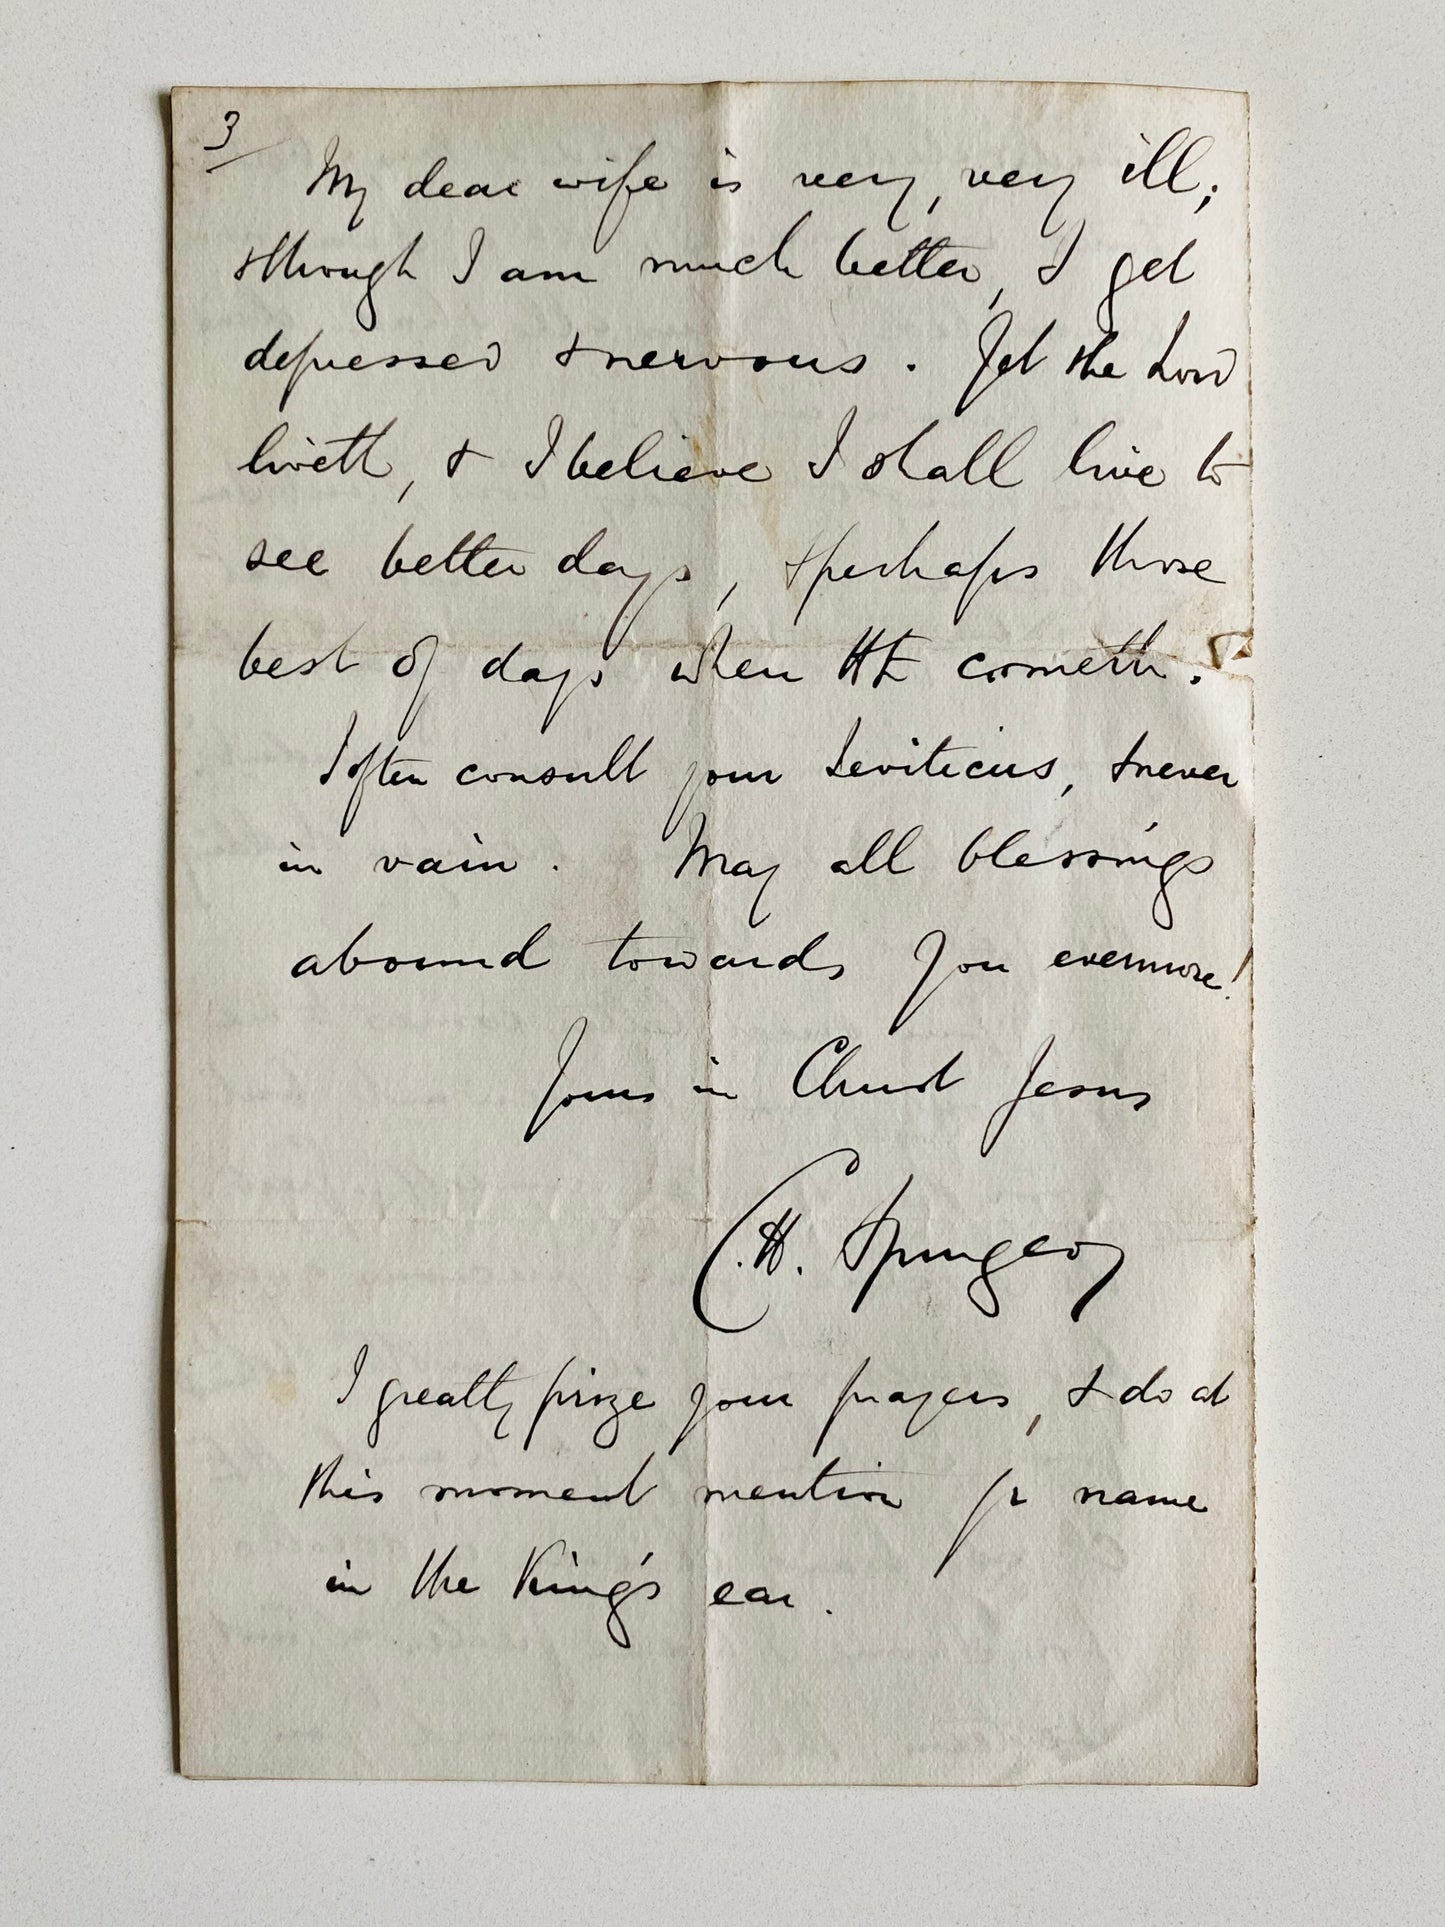 3
My dear wife is very, very ill;
& though I am much better, I get
depressed & nervous. Yet the Lord
liveth, & I believe I shall live to
see better days, & perhaps those
best of days when HE cometh.
I often consult your Leviticus, & never
in vain. May all blessings
abound towards you evermore!
Yours in Christ Jesus
C. H. Spurgeon
I greatly prize your prayers, & do at
this moment mention yr name
in the King's ear.